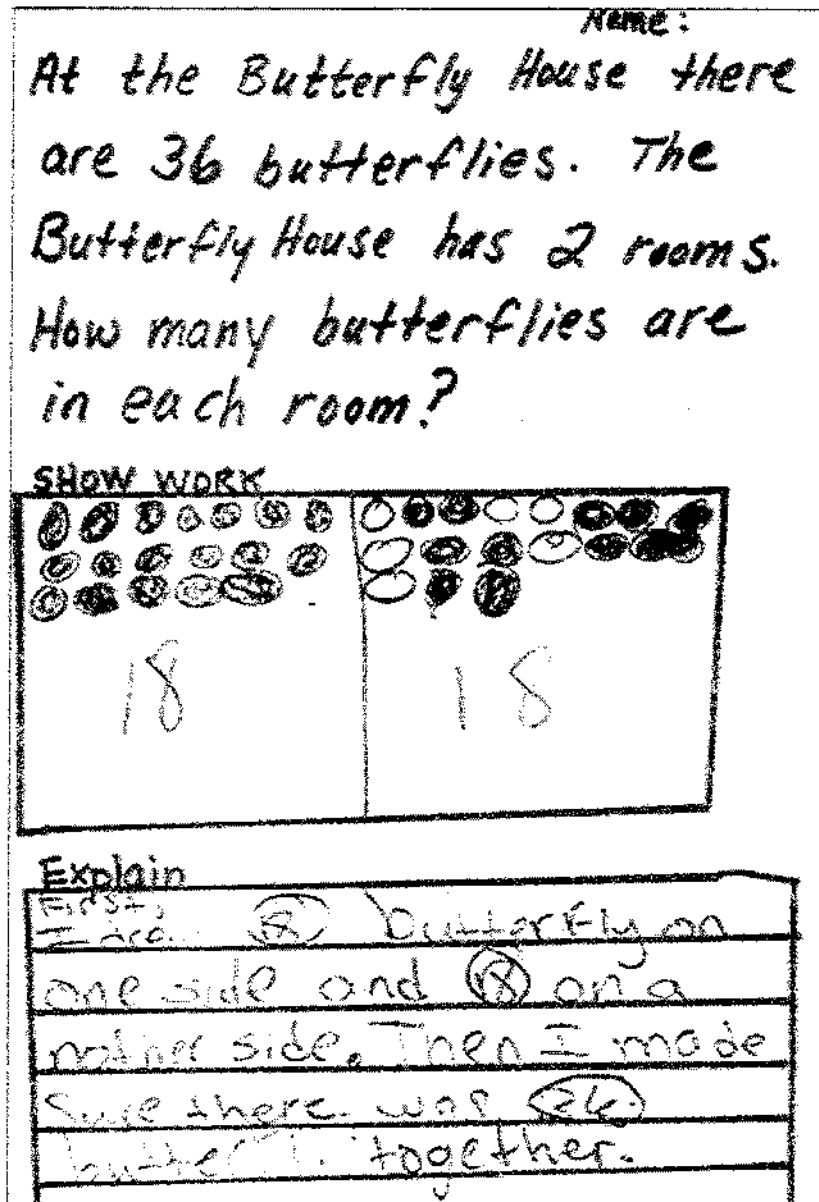 Name:
At the Butterfly House there
are 36 butterflies. The
Butterfly House has 2 rooms.
How many butterflies are
in each room?
SHOW WORK
18 18
Explain
First,
I butterfly on
one side and on a
nother side. Then I made
Sure there was
together.